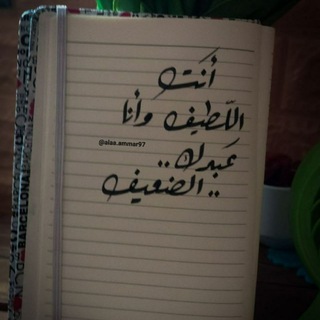 أنت
اللطيف وأنا
@alaa.ammar97
عبدك..
.. الضعيف
BARCELONA